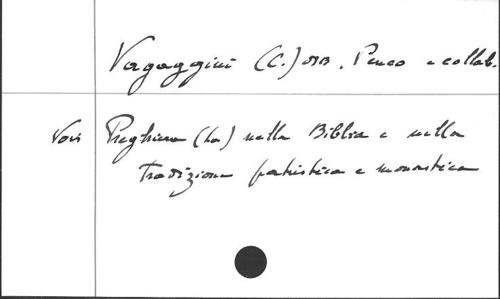 Vagaggini (C.) OSB, Penco e collab.
Voir Preghiera (La) nella Biblia e nella
tradizione patristica e monastica